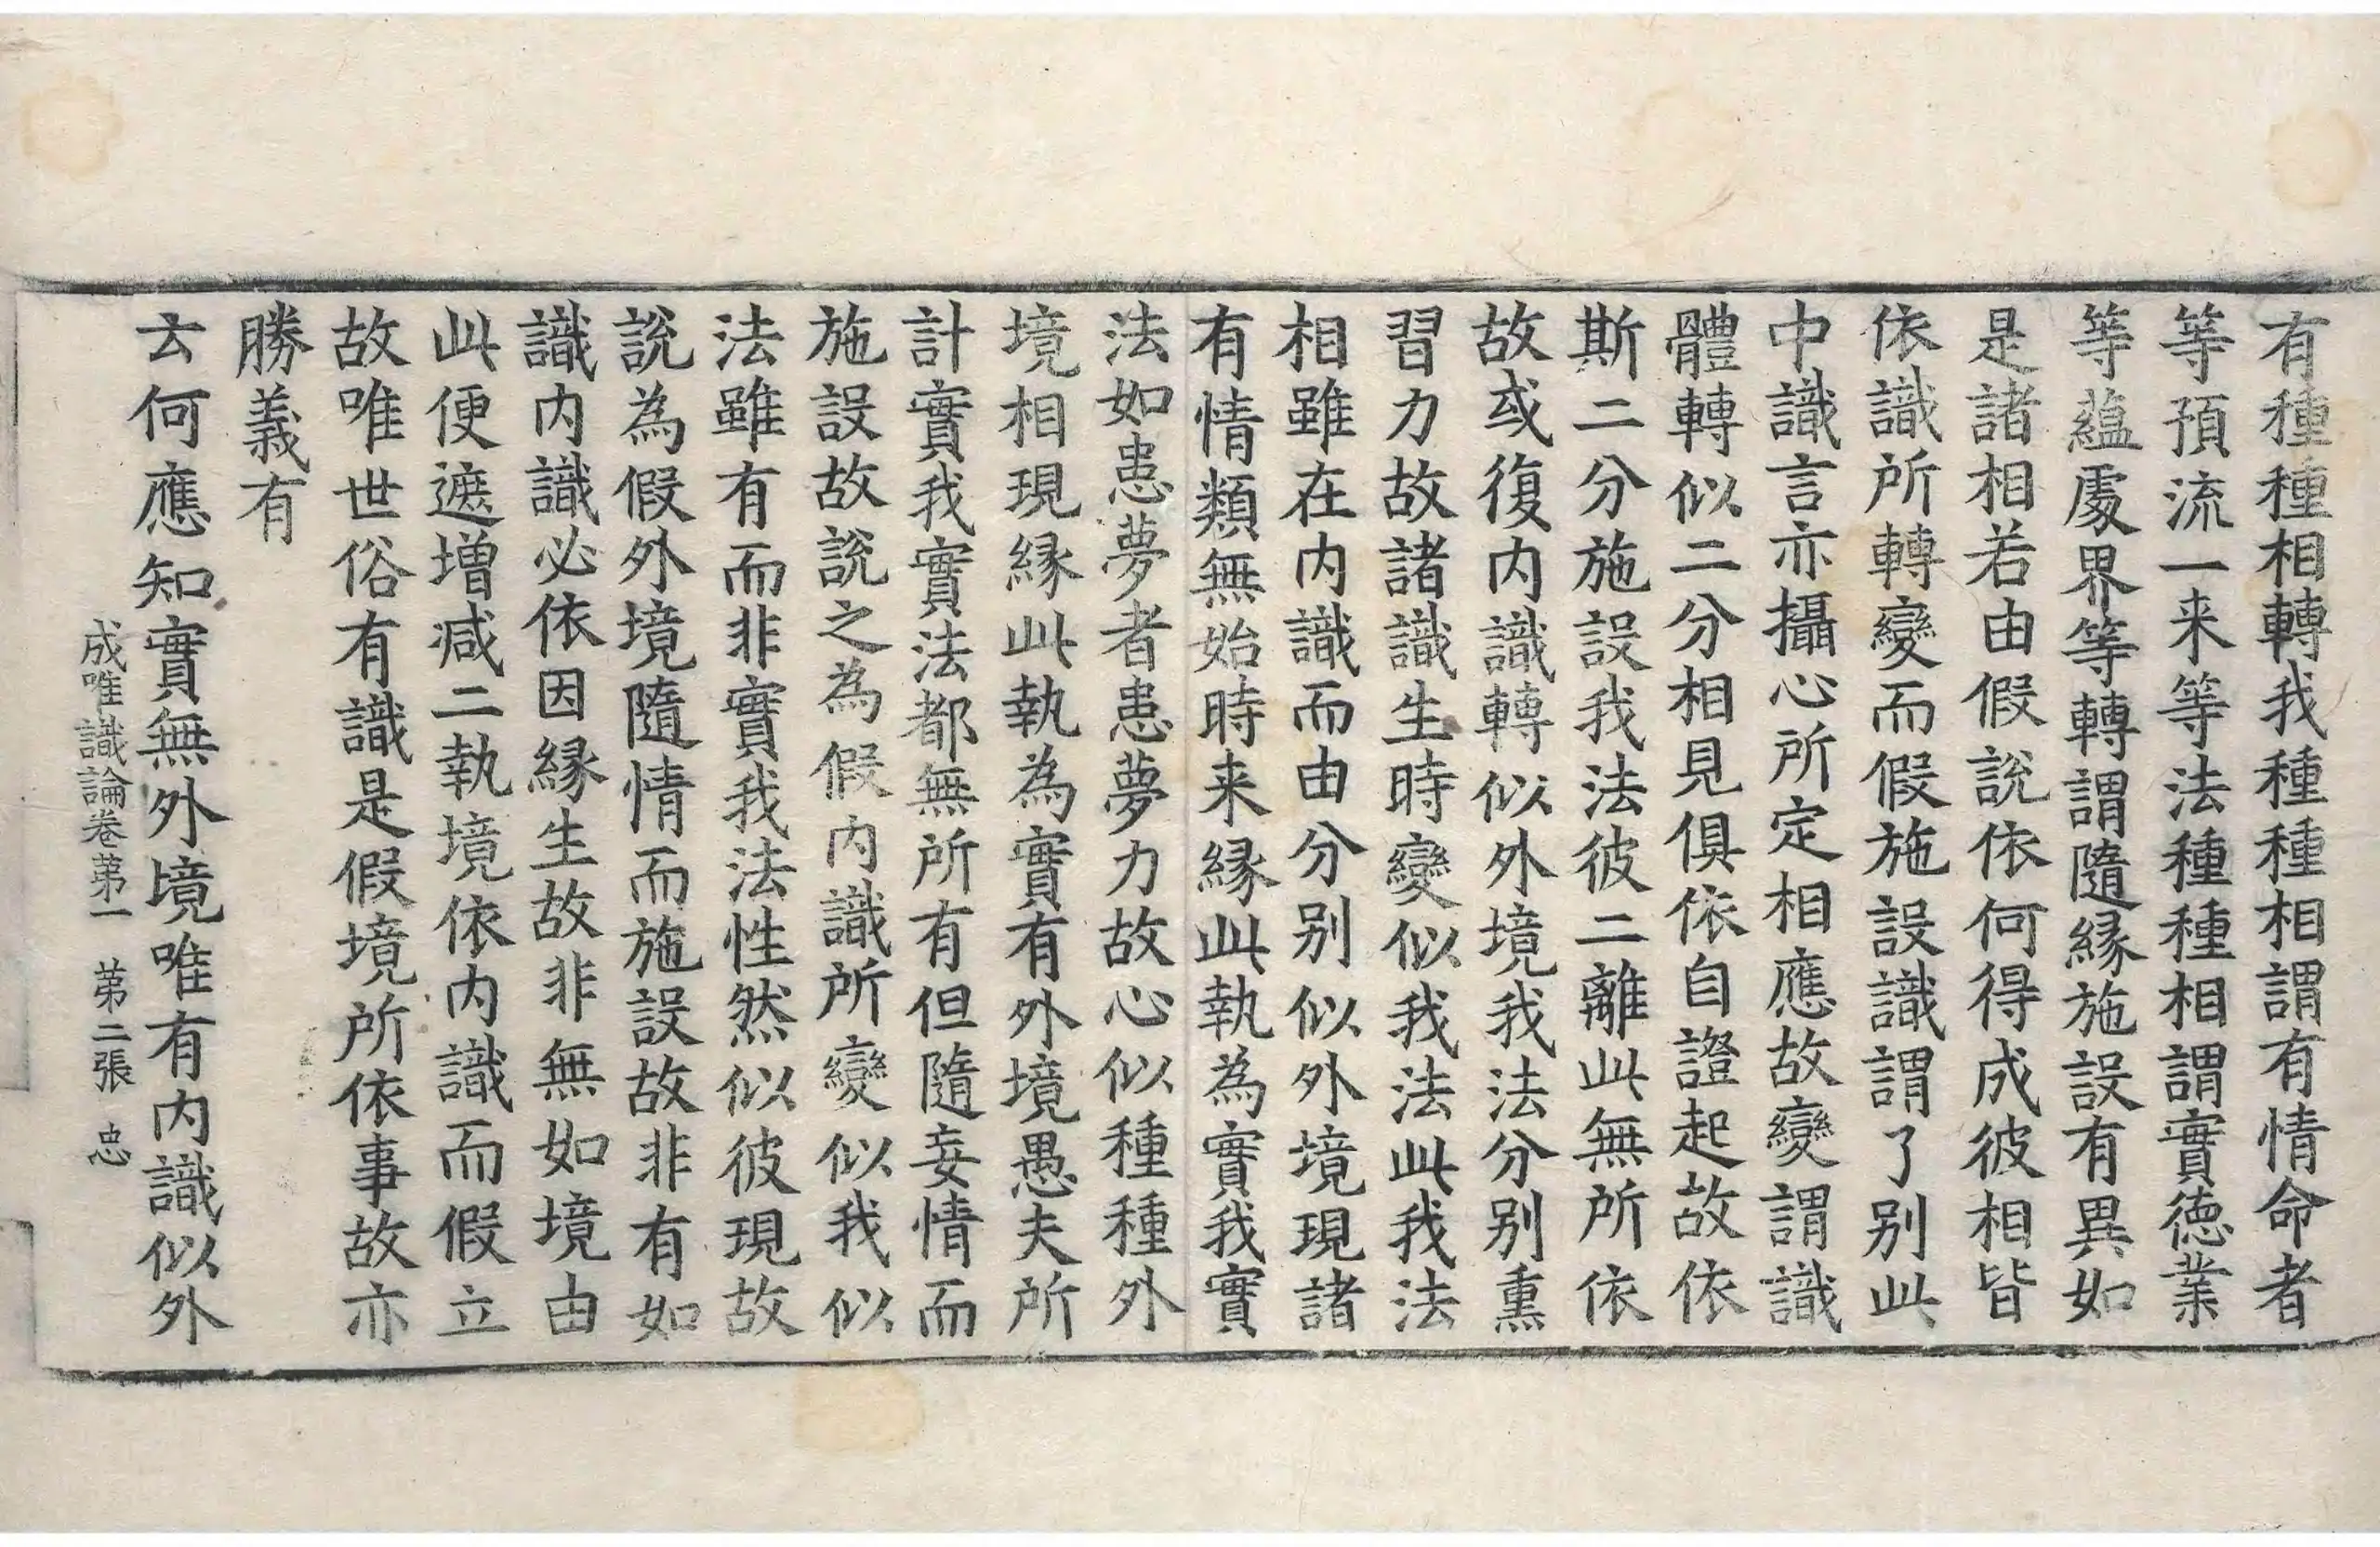 有種種相轉我種種相謂有情命者
等預流一来等法種種相謂實徳業
等蘊處界等轉謂隨縁施設有異如
是諸相若由假說依何得成彼相皆
依識所轉變而假施設識謂了别此
中識言亦攝心所定相應故變謂識
體轉似二分相見俱依自證起故依
斯二分施設我法彼二離此無所依
故或復内識轉似外境我法分别熏
習力故諸識生時變似我法此我法
相雖在内識而由分别似外境現諸
有情類無始時来縁此執為實我實
法如患夢者患夢力故心似種種外
境相現縁此執為實有外境愚夫所
計實我實法都無所有但隨妄情而
施設故說之為假内識所變似我似
法雖有而非實我法性然似彼現故
說為假外境隨情而施設故非有如
識内識必依因縁生故非無如境由
此便遮增减二執境依内識而假立
故唯世俗有識是假境所依事故亦
勝義有
云何應知實無外境唯有内識似外
成唯識論卷苐一　苐二張　忠